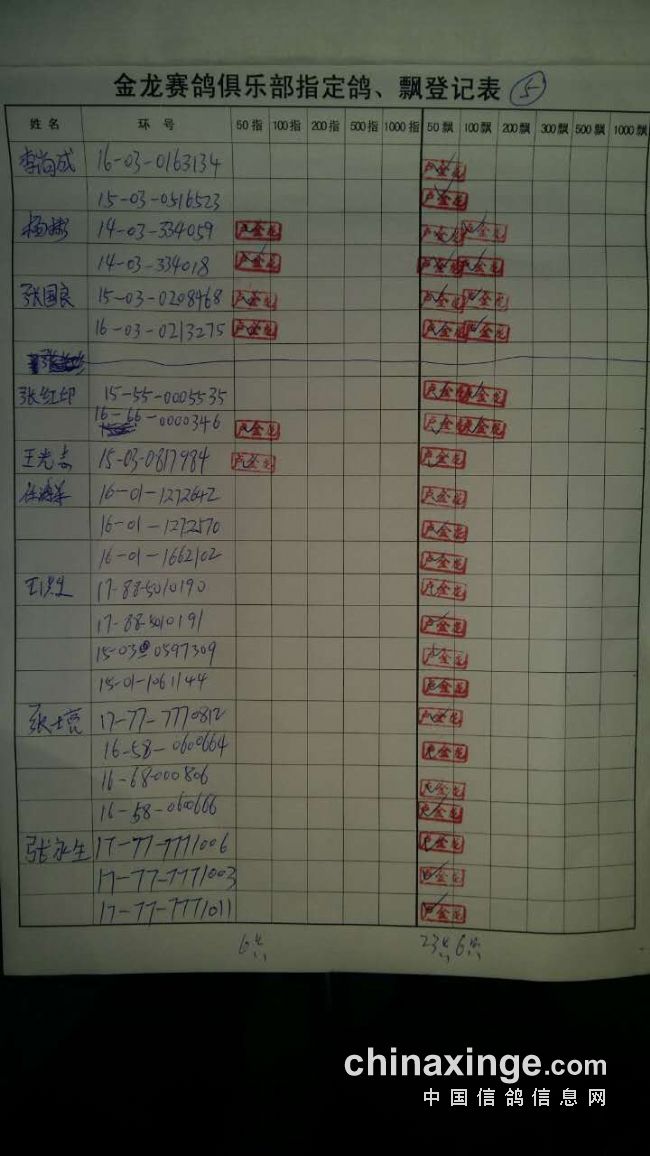 金龙赛鸽俱乐部指定鸽、飘登记表 5
姓名 环号 50指 100指 200指 500指 1000指 50飘 100飘 200飘 300飘 500飘 1000飘
李尚成 16-03-0163134 卢金花
15-03-0516523 卢金花
14-03-334059 卢金花 卢金花 卢金花
14-03-334018 卢金花 卢金花 卢金花
张国良 15-03-0208468 卢金花 卢金花 卢金花
16-03-0213275 卢金花 卢金花 卢金花
张红印 15-55-0005535 卢金花 卢金花
16-66-0000346 卢金花 卢金花 卢金花
王光志 15-03-0817984 卢金花 卢金花
16-01-1272642 卢金花
16-01-1272570 卢金花
16-01-1662102 卢金花
17-88-5010190 卢金花
17-88-5010191 卢金花
15-03 0597309 卢金花
15-01-1061144 卢金花
张士亮 17-77-7770812 卢金花
16-58-0600664 卢金花
16-68-000806 卢金花
16-58-060666 卢金花
张永生 17-77-7771006 卢金花
17-77-7771003 卢金花
17-77-7771011 卢金花
6 23 6
chinaxinge.com
中国信鸽信息网